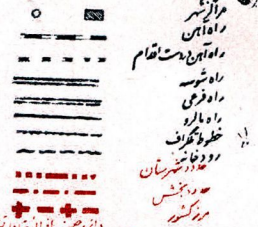 مراکز شهر
راه آهن
راه آهن در دست اقدام
راه شوسه
راه فرعی
راه مالرو
خطوط تلگراف
رودخانه
حدود شهرستان
حدود بخش
مرز کشور